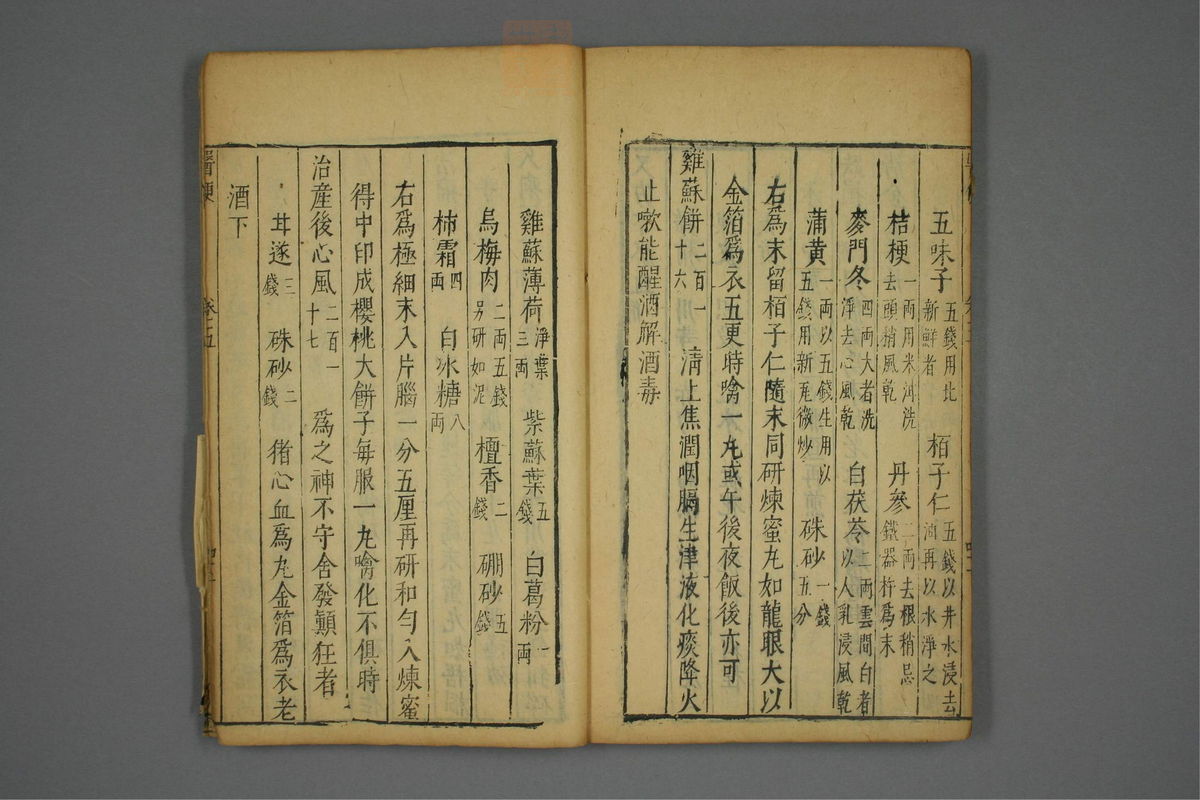 五味子五錢用北新鮮者 栢子仁五錢以井水浸去油再以水淨之
桔梗一兩用米泔洗去頭稍風乾 丹參二兩去根稍忌鐵器杵為末
麥門冬四兩大者洗淨去心風乾 白茯苓二兩雲間白者以人乳浸風乾
蒲黃一兩以五錢生用以五錢用新瓦微炒 硃砂一錢五分
右為末留栢子仁隨末同研煉蜜丸如龍眼大以
金箔為衣五更時噙一丸或午後夜飯後亦可
雞蘇餅二百一十六 清上焦潤咽膈生津液化痰降火
止嗽能醒酒解酒毒
雞蘇薄荷淨葉三兩 紫蘇葉五錢 白葛粉一兩
烏梅肉二兩五錢另研如泥 檀香二錢 硼砂五錢
柿霜四兩 白氷糖八兩
右為極細末入片腦一分五厘再研和勻入煉蜜
得中印成櫻桃大餅子每服一丸噙化不俱時
治産後心風二百一十七 為之神不守舍發顛狂者
茸遂三錢 硃砂二錢 猪心血為丸金箔為衣老
酒下
卷五